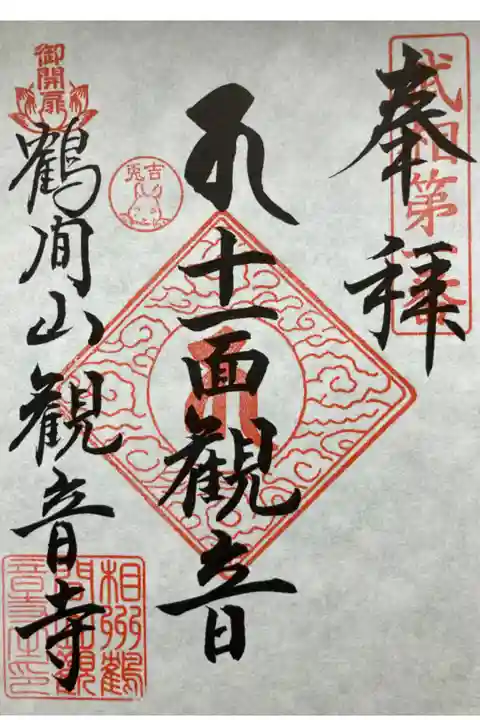 武相第一番
奉拝
十一面観音
吉兎
御開扉
鶴間山観音寺
相州鶴